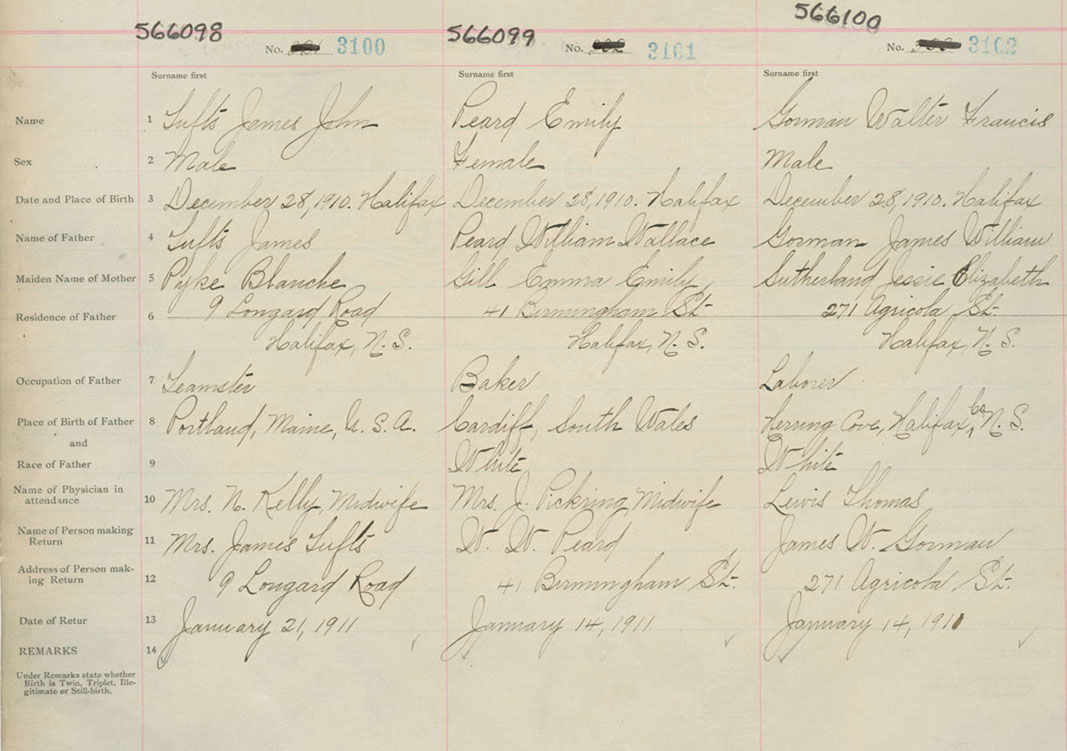 566098 566099 566100
No. 3100 No. 3101 No. 3102
Surname first Surname first Surname first
Name 1 Tufts James John Peard Emily Gorman Walter Francis
Sex 2 Male Female Male
Date and Place of Birth 3 December 28, 1910. Halifax December 28, 1910. Halifax December 28, 1910. Halifax
Name of Father 4 Tufts James Peard William Wallace Gorman James William
Maiden Name of Mother 5 Pyke Blanche Gill Emma Emily Sutherland Jessie Elizabeth
Residence of Father 6 9 Longard Road 41 Birmingham St. 271 Agricola St.
Halifax, N. S. Halifax, N. S. Halifax, N. S.
Occupation of Father 7 Teamster Baker Laborer
Place of Birth of Father 8 Portland, Maine, U. S. A. Cardiff, South Wales Herring Cove, Halifax, Co N. S.
and
Race of Father 9 White White
Name of Physician in
attendance 10 Mrs. N. Kelly, Midwife Mrs. J. Pickring Midwife Lewis Thomas
Name of Person making
Return 11 Mrs. James Tufts W. W. Peard James W. Gorman
Address of Person mak-
ing Return 12 9 Longard Road 41 Birmingham St. 271 Agricola St.
Date of Retur 13 January 21, 1911 January 14, 1911 January 14, 1911
REMARKS 14
Under Remarks state whether
Birth is Twin, Triplet, Ille-
gitimate or Still-birth.